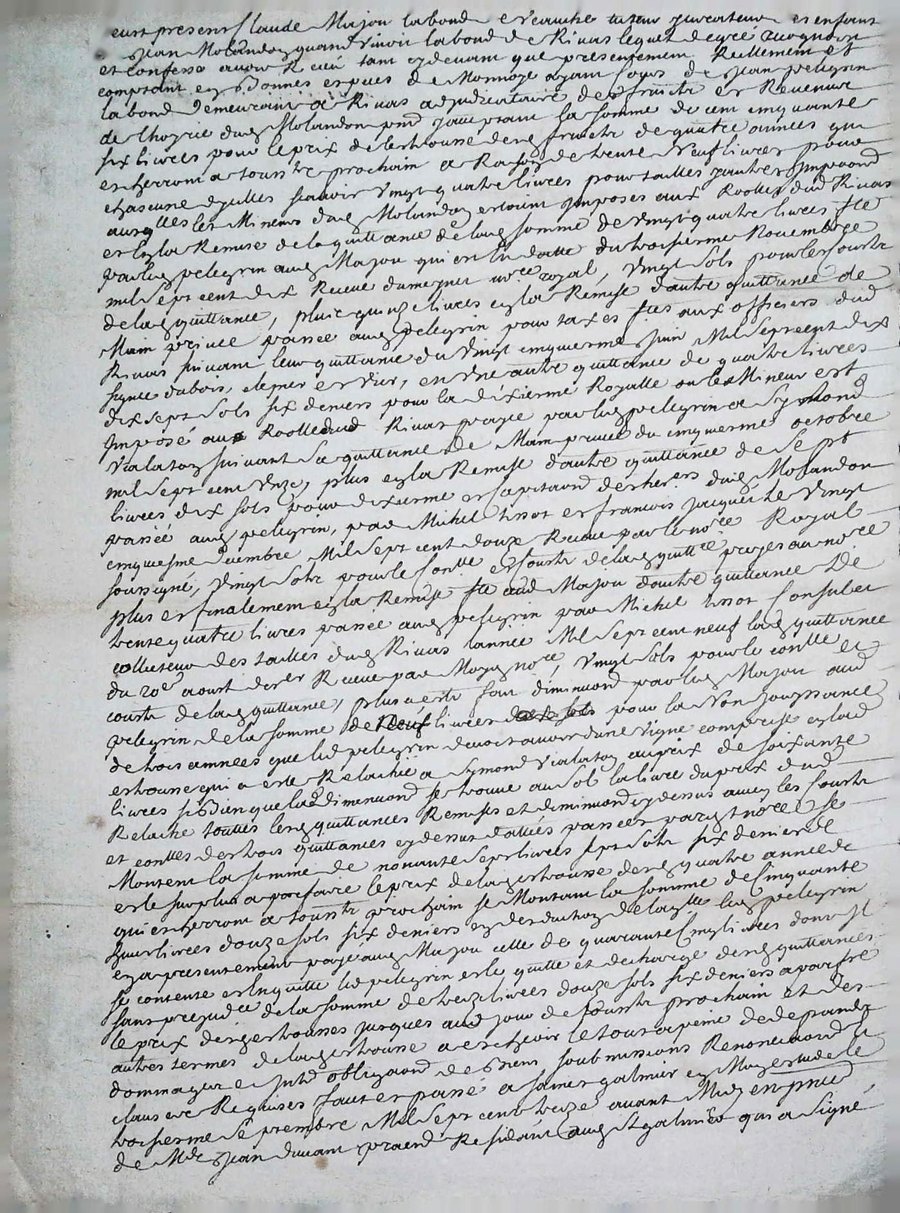 eust present Claude Majou labond en cauche tuteur curateur es enfant
Jean Molandon quand vivoit labond de Rivas lequel de gré recognoit
et confesse avoir Receu tam cydevant que presentement Reellement et
comptant en Bonnes especes de Monnoye ayant cours de Jean pelegrin
labond demeurant a Rivas adjudicataire des fruictz et Revenus
de lhoyrie dud Molandon pnt jacceptant la somme de cent cinquante
six livres pour le prix de lestrousse desd fruictz de quatre années qui
escherront a tousstz prochain a Raison de trente neuf livres pour
chascune dycelles scavoir Vingt quatre livres pour tailles jautres Impoond
ausqlles les Mineurs dud Molandon estoient Imposés aux Roolles dud Rivas
et la Remise de la quittance de lad somme de vingt quatre livres fte
par led pelegrin aud Majou qui en la datte du troisieme Novembre
mil sept cent dix Receue dumeynier nore royal, vingt sols pour les coustz
de lad quittance, plus quinze livres en la Remise dautre quittance de
Main privée passée aud pelegrin pour taxes ftes aux officiers dud
Rivas suivant leur quittance du Vingt cinquieme Juin Mil sept cent dix
signée dubois, et Vier, en une autre quittance de quatre livres
dix sept sols six deniers pour la dixieme Royalle ou les Mineur est
Imposé au Roolle dud Rivas payée par led pelegrin a Symond
Vialaton suivant sa quittance de Main privée du cinquieme octobre
mil sept cent unze, plus en la Remise dautre quittance de sept
livres dix sols pour dixieme et capitaond des heirs dud Molandon
passée aud pelegrin, par Michel tissot et francois jacquet le Vingt
cinquesme decembre Mil sept cent douze Receue par le nore Royal
soussigné, Vingt solz pour le contle et coustz de lad quittce payes au nore
plus et finalement en la Remise fte aud Majou dautre quittance De
trente quatre livres passée aud pelegrin par Michel tissot Consul et
collecteur des tailles dud Rivas lannée Mil sept cent neuf lad quittance
du 20e aoust dernier Receue par nore, Vingt sols pour le contlle et
coustz de lad quittance, plus a esté fait diminuond par led Majou aud
pelegrin de la somme de Neuf livres pour la Non jouyssance
de trois années que led pelegrin devoit avoir dune Vigne comprise en lad
estrousse qui a esté Relachée a Symond Vialaton au prix de soixante
livres si Bien que lad dimenuond se trouve au sol la livre du prix dud
Relache touttes lesd quittances Remises et diminuond cydessus avec les coustz
et contlles des trois quittances cydessus dattées passées pardt nore se
Montent la somme de nonante sept livres sept sols six deniers
et le surplus a parfaire le prix de lad estrousse desd quatre années
qui escherront a tousstz prochain se Montant la somme de Cinquante
huit livres douze sols six deniers en deduction de laqlle led pelegrin
en a presentement payé aud Majou celle de quarante Cinq livres dont il
se contente et en quitte led pelegrin et le quitte et descharge desd quittances
sans prejudice de la somme de treize livres douze sols six deniers a parfre
le prix desd estrousses jusques aud jour de tousstz prochain et des
autres termes de lad estrousse a eschevir le tout a peine de despands
dommages et Intds obligaond de Biens soubmissions Renonciaond et
clauses Requises fait et passé a Sainct galmier en Mon estude le
troisieme septembre Mil sept cent treize avant Midy en pnce
de Mre Jean durant praticien Residant aud St galmier qui a signé